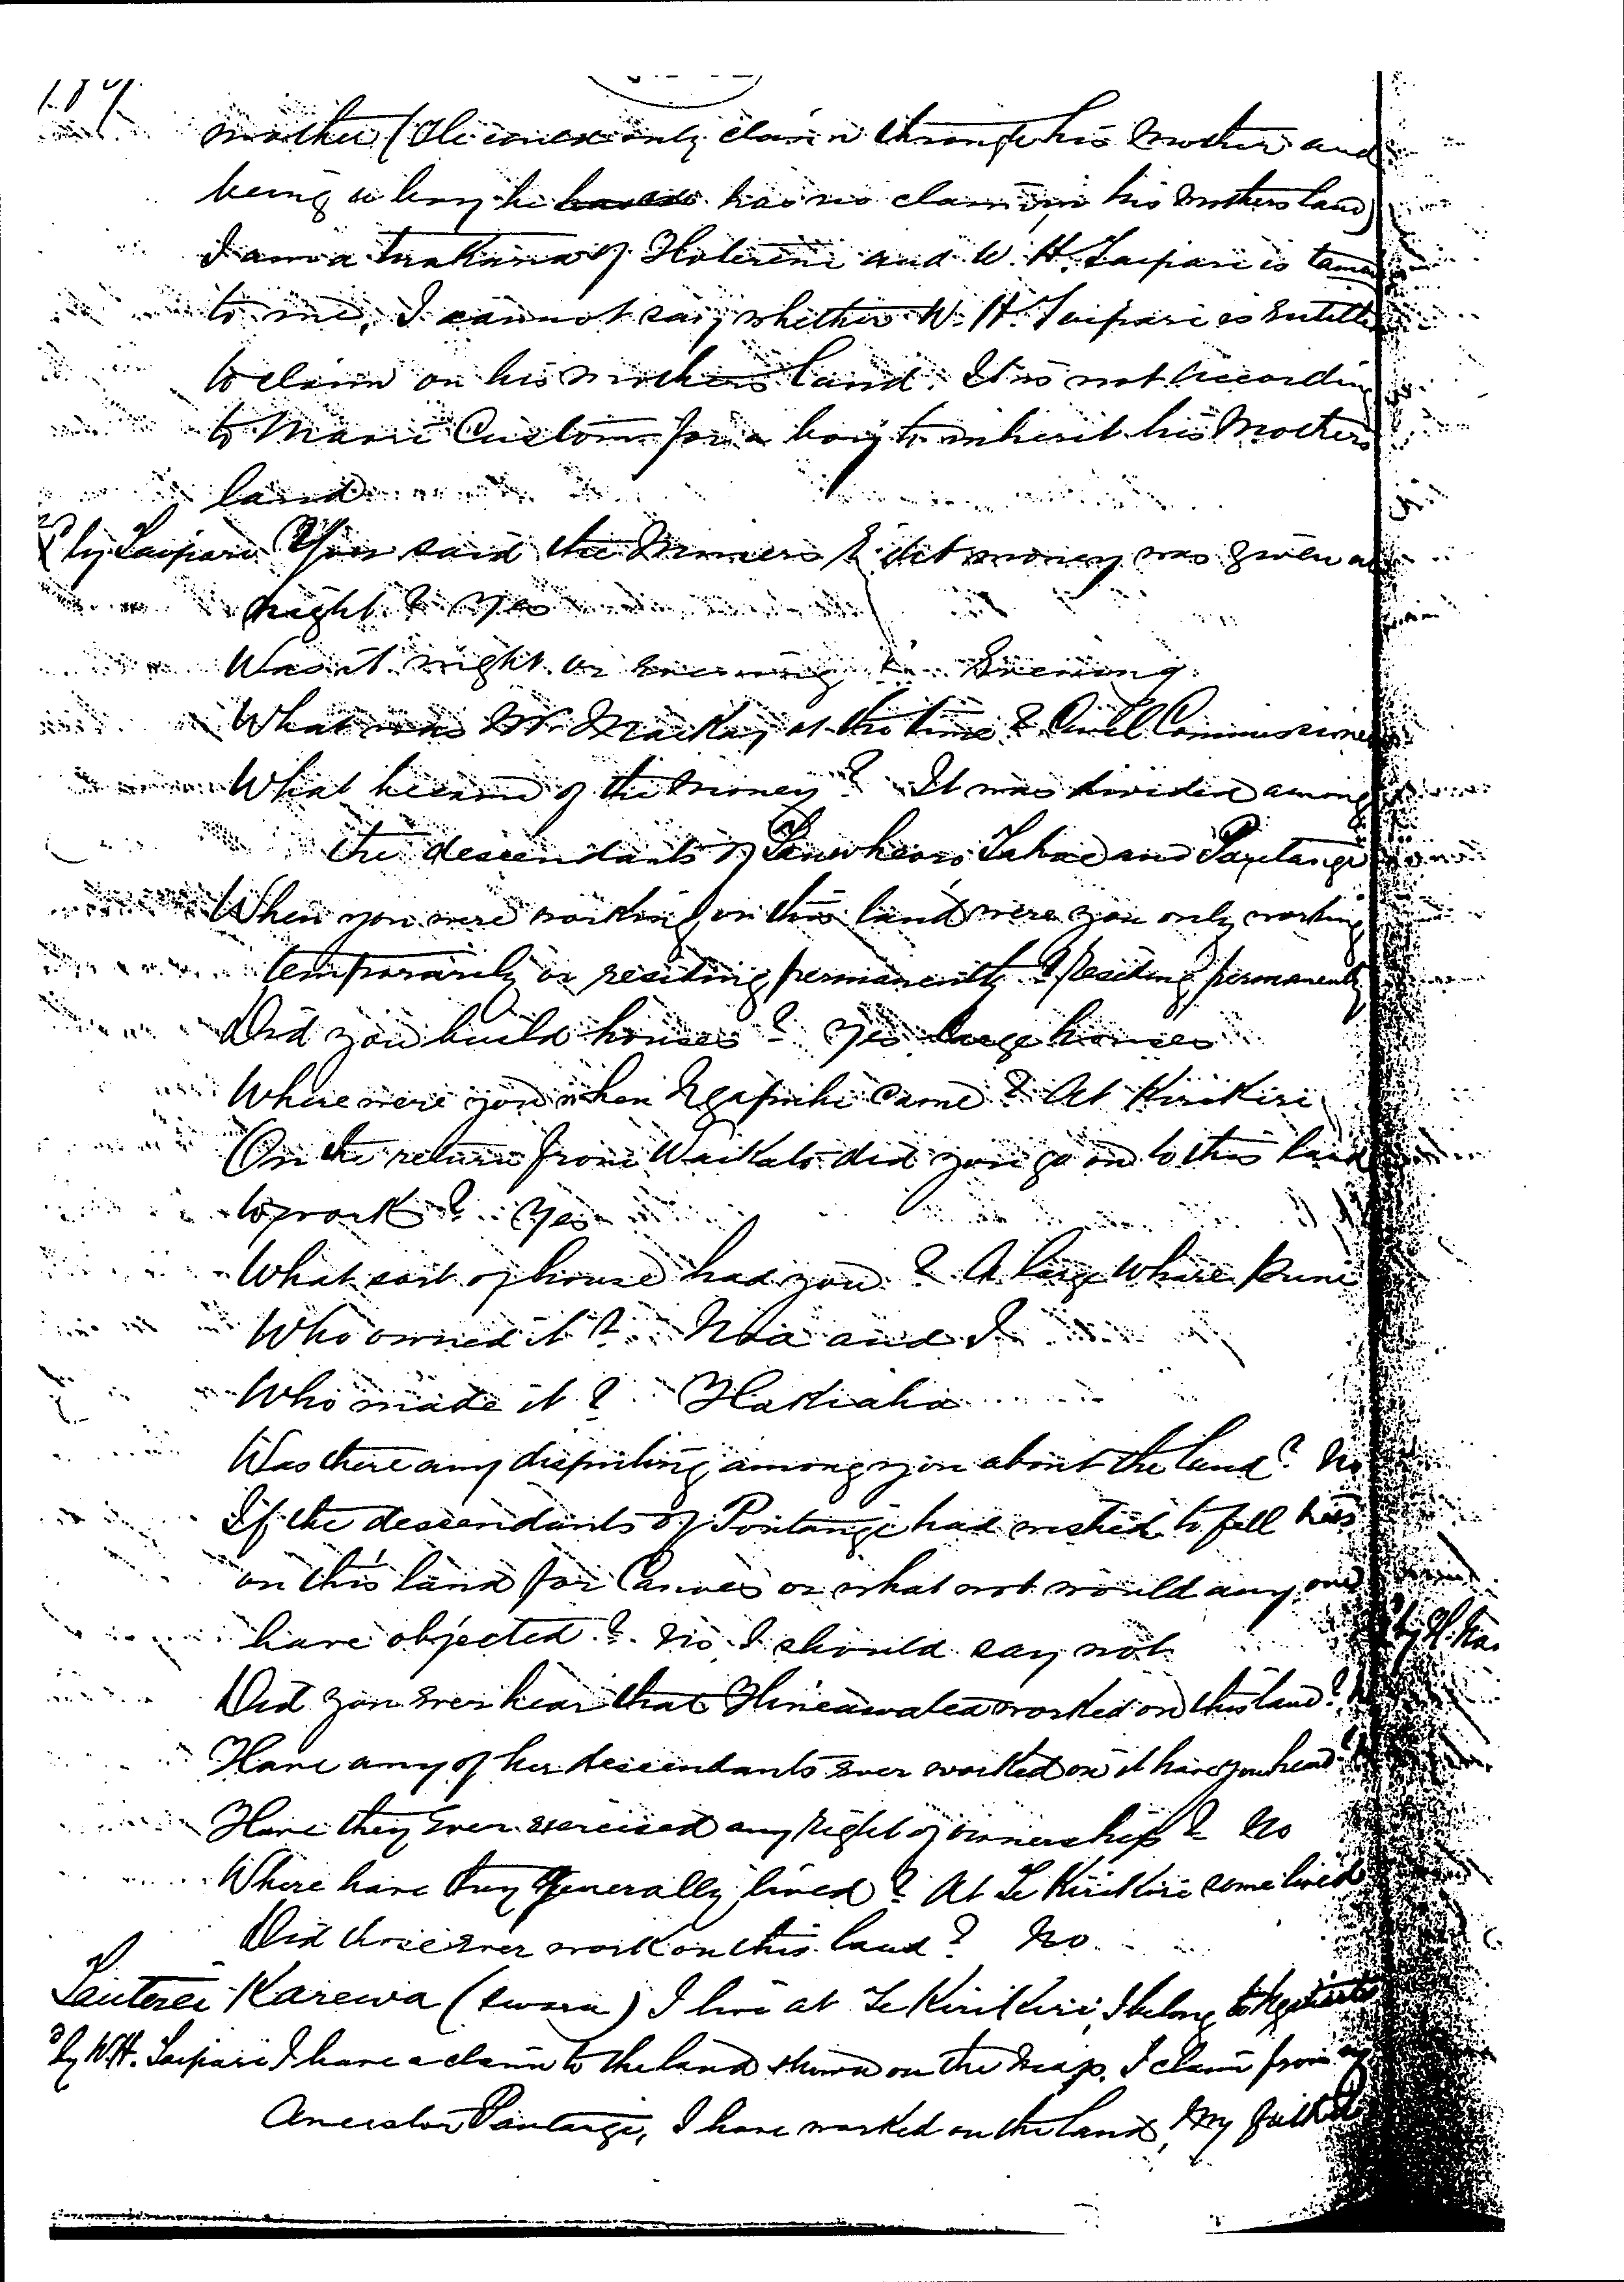 mother (He can only claim through his mother and
being a boy he has no claim in his mothers land)
I am a tuakana of Hoterini and W. H. Taipari is
to me, I cannot say whether W. H. Taipari is
to claim on his mothers land. It is not according
to Maori Custom for a boy to inherit his Mothers
land
? by Taipari You said the Miners money was given at
night? Yes
Was it night or evening? Evening.
What was Mr Mackay at the time? Civil Commissioner
What became of the money? It was divided among
the descendants of and
When you were working on this land were you only working
temporarily or residing permanently? Residing permanently
Did you build houses? Yes large houses
Where were you when Ngapuhi came? At Kirikiri
On the return from Waikato did you go on to this land
to work? Yes
What sort of house had you? A large Whare Puni
Who owned it? Noa and I
Who made it? Hakiaha
Was there any disputing among you about the land? No
If the descendants of had wished to fell trees
on this land for Canoes or what not would any one
have objected? No, I should say not
Did you ever hear that worked on this land?
Have any of her descendants ever worked on it have you heard
Have they ever exercised any right of ownership? No
Where have they generally lived? At Te Kirikiri some lived
Did those ever work on this land? No
Karewa (sworn) I live at Te Kirikiri, I belong to
? by W.H. Taipari I have a claim to the land shown on the Map. I claim from my
Ancestor I have worked on the land, My father